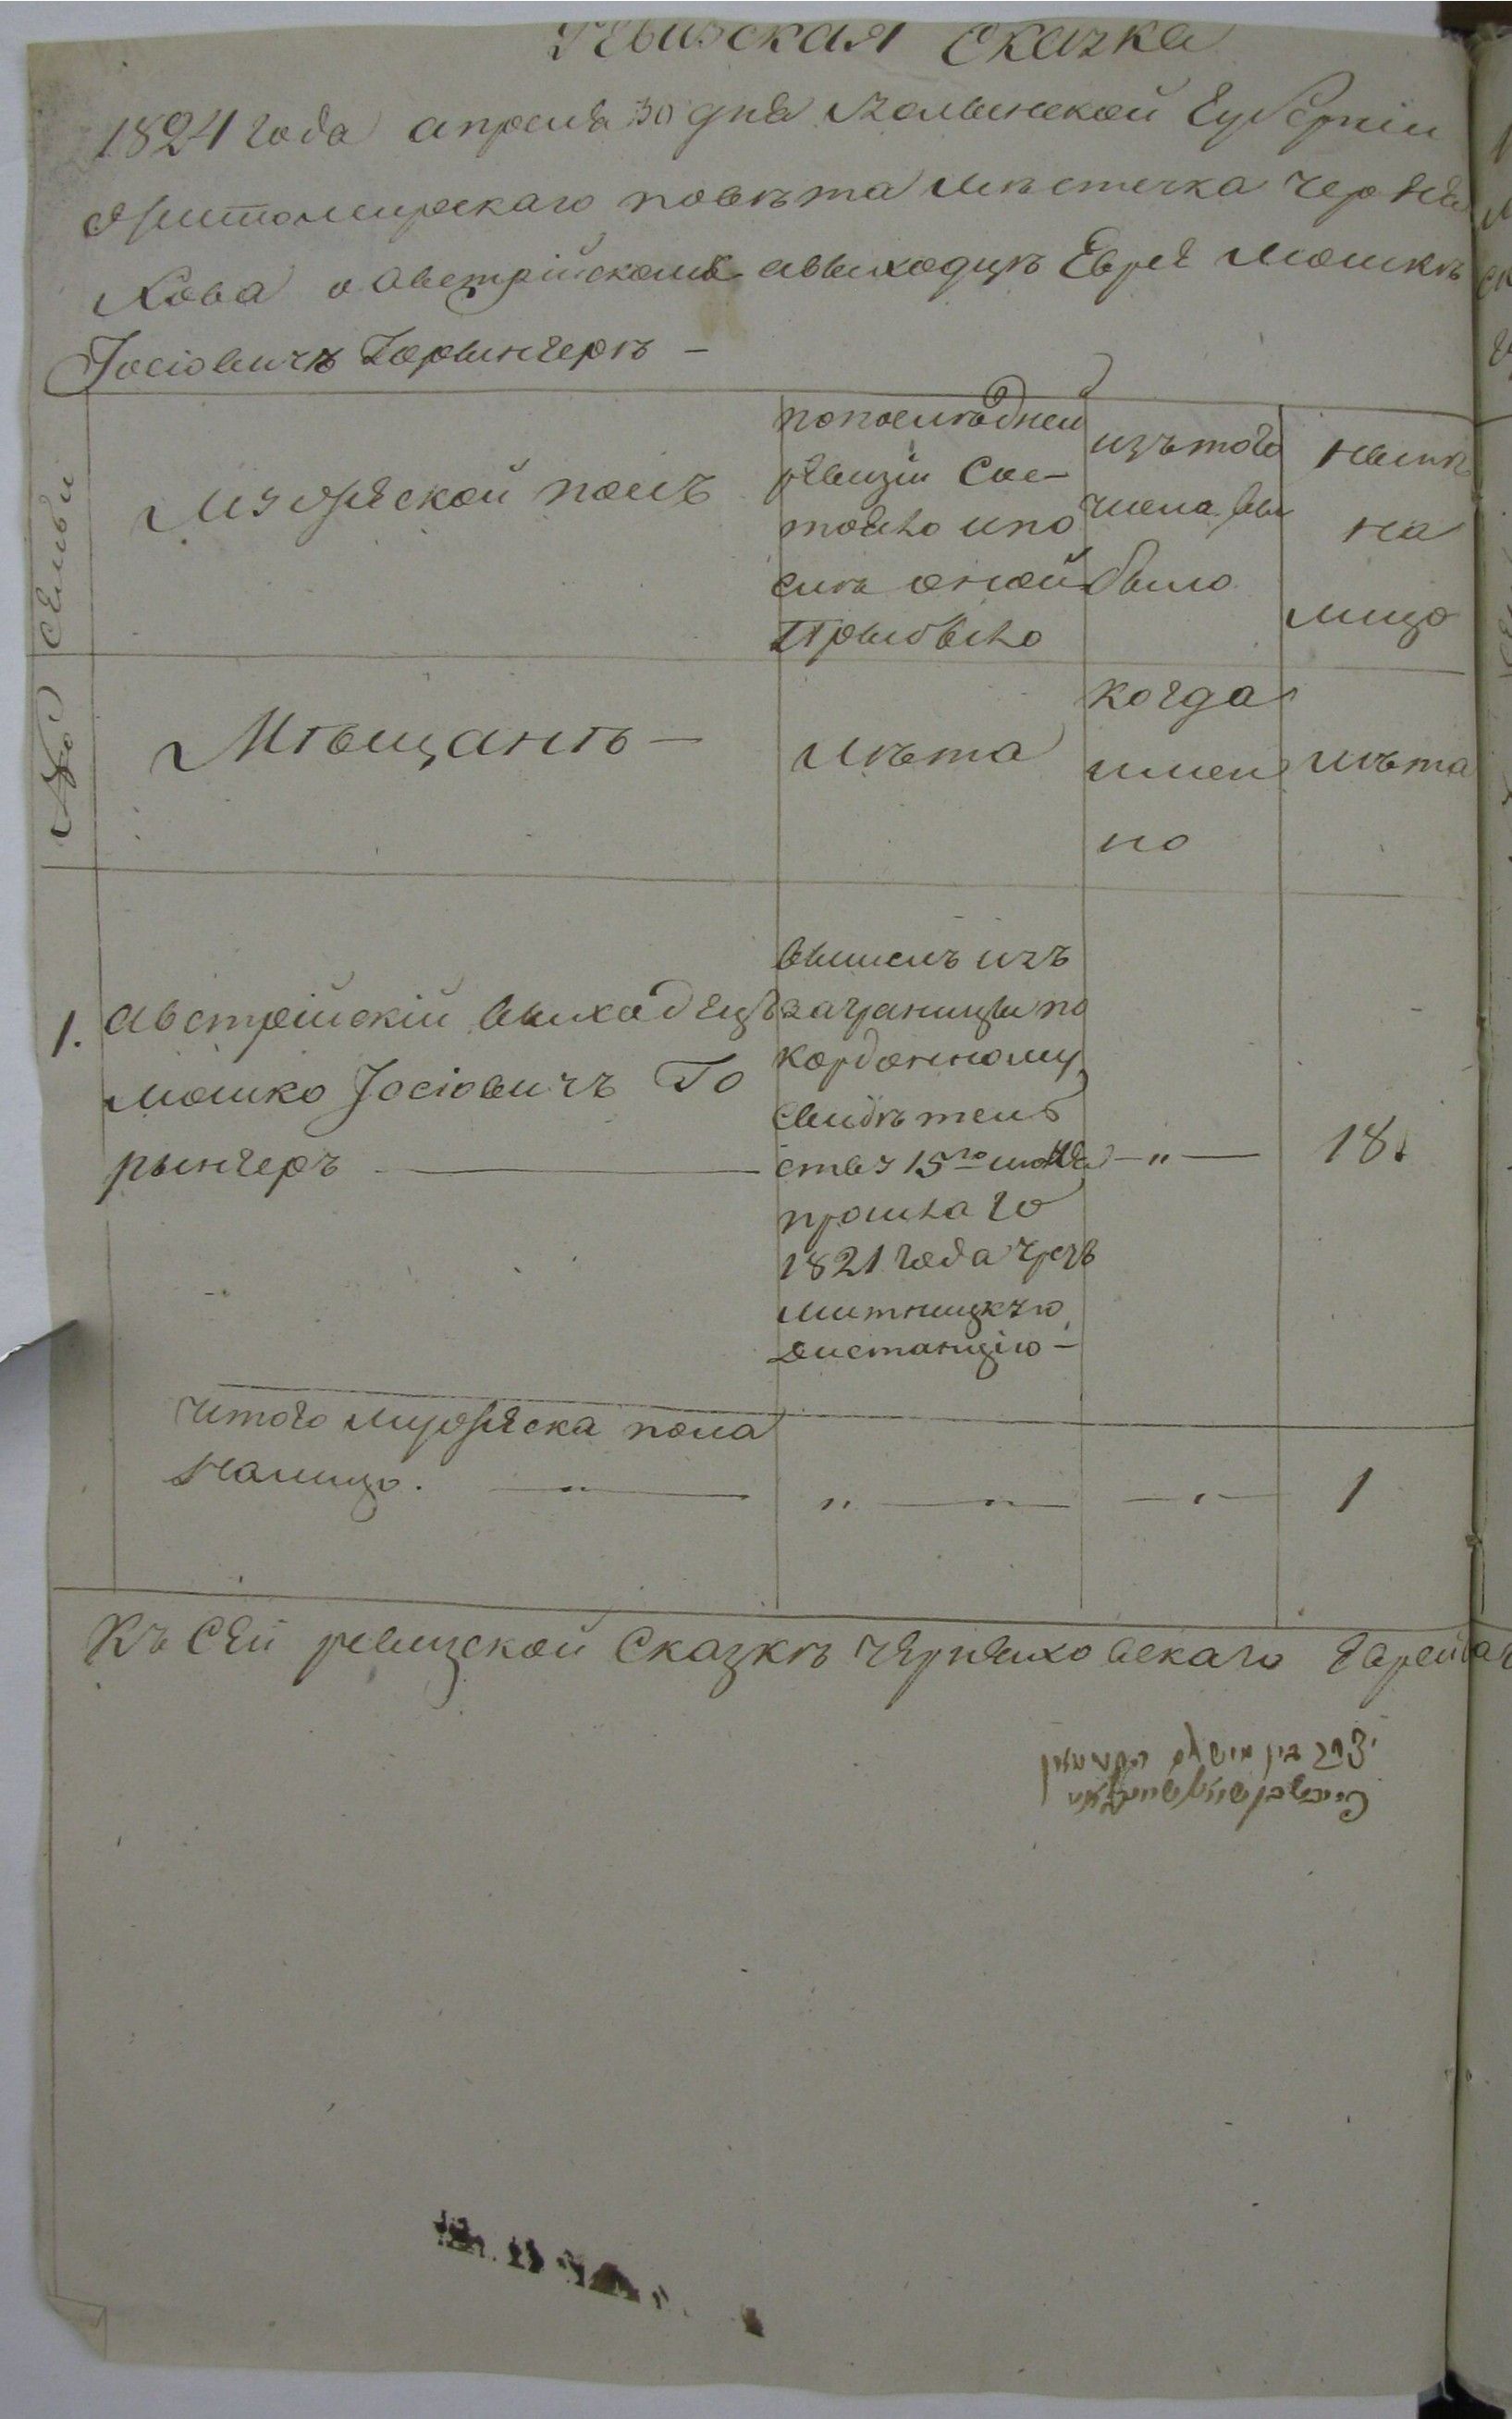 Ревизская Сказка
1824 года апреля 30 дня Волынской Губернiи
Житомирскаго повѣта мѣстечка Черня
хова о австрiйскомъ выходцѣ Еврея Мошкѣ
Iосiовичѣ Горынгерѣ —
№ Семьи
Музжеской полъ
попослѣдней
ревизiи Сос-
тояло ипо
слѣ оной
Прыбыло
изътого
числа вы
было
нынѣ
на
лицо
Мѣщанъ —
лѣта
когда
имен
но
лѣта
1. Австрiйскiй выходецъ
Мошко Iосiовичъ Го
рынгеръ
вышелъ изъ
заграницы по
кордонному
свидѣтель
ству 15го
прошлаго
1821 года чрезъ
митницкую
дистанцiю —
— " —
18.
Итого мужеска пола
Налицо. — " —
" — " —
— " —
1
Къ Сей ревизской Сказкѣ Черняховскаго Еврейска